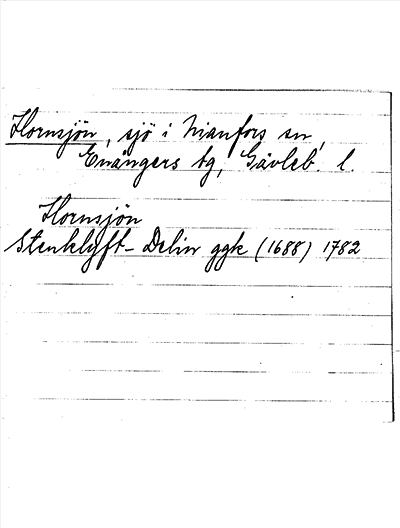 Hornsjön, sjö i Nianfors sn,
Enångers tg, Gävleb. l.
Hornsjön
Stenklyft-Delin ggk (1688) 1782